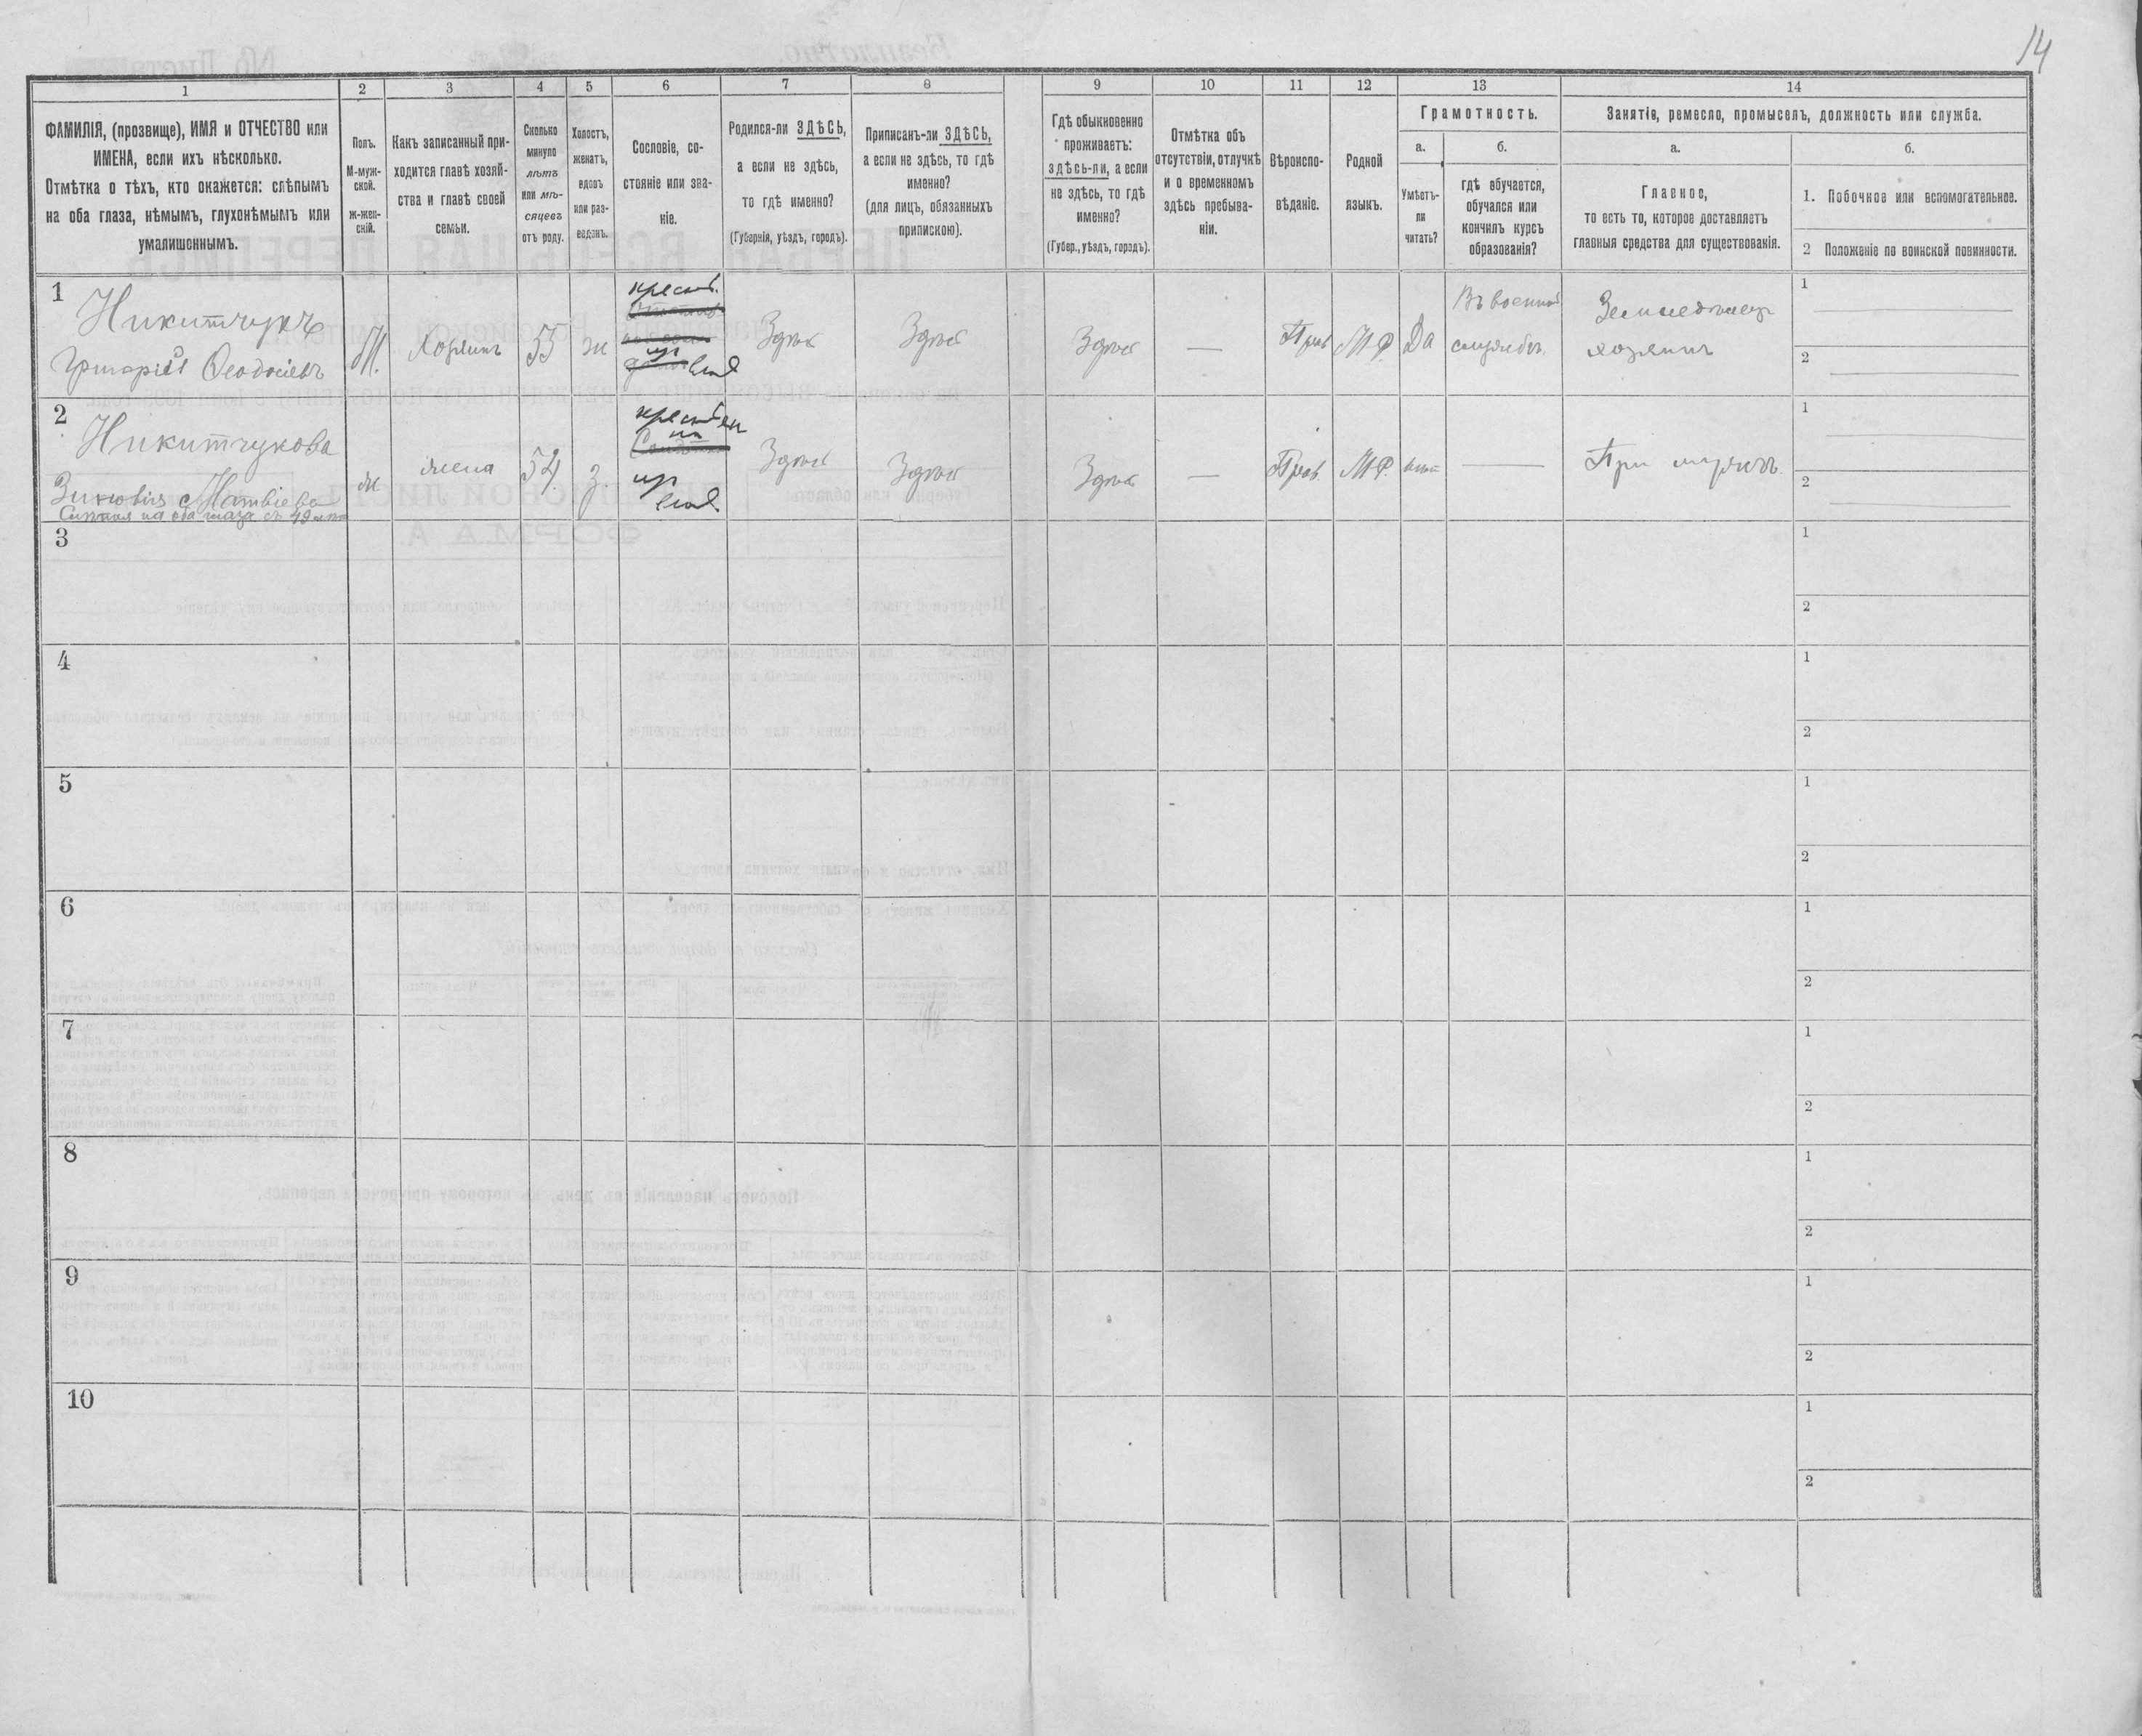 14
1
2
3
4
5
6
7
8
9
10
11
12
13
14
ФАМИЛІЯ, (прозвище), ИМЯ и ОТЧЕСТВО или
ИМЕНА, если ихъ нѣсколько.
Отмѣтка о тѣхъ, кто окажется: слѣпымъ
на оба глаза, нѣмымъ, глухонѣмымъ или
умалишеннымъ.
Полъ.
М-муж-
ской.
ж-жен-
скій.
Какъ записанный при-
ходится главѣ хозяй-
ства и главѣ своей
семьи.
Сколько
минуло
лѣтъ
или мѣ-
сяцевъ
отъ роду.
Холостъ,
женатъ,
вдовъ
или раз-
веденъ.
Сословіе, со-
стояніе или зва-
ніе.
Родился-ли ЗДѢСЬ,
а если не здѣсь,
то гдѣ именно?
(Губернія, уѣздъ, городъ).
Приписанъ-ли ЗДѢСЬ,
а если не здѣсь, то гдѣ
именно?
(для лицъ, обязанныхъ
припискою).
Гдѣ обыкновенно
проживаетъ:
здѣсь-ли, а если
не здѣсь, то гдѣ
именно?
(Губер., уѣздъ, городъ).
Отмѣтка объ
отсутствіи, отлучкѣ
и о временномъ
здѣсь пребыва-
ніи.
Вѣроиспо-
вѣданіе.
Родной
языкъ.
Грамотность.
а.
Умѣетъ-
ли
читать?
б.
гдѣ обучается,
обучался или
кончилъ курсъ
образованія?
Занятіе, ремесло, промыселъ, должность или служба.
а.
Главное,
то есть то, которое доставляетъ
главныя средства для существованія.
б.
1. Побочное или вспомогательное.
2 Положеніе по воинской повинности.
1
Никитчукъ
Григорій Ѳеодосіевъ
М.
Хозяинъ
55
ж
крест.
Здѣсь
Здѣсь
Здѣсь
—
Прав
М.Р.
Да
Въ военной
службѣ.
Земледѣлецъ
хозяинъ
1
2
2
Никитчукова
Зиновія Матвіева
Слѣпая на оба глаза съ
ж
жена
54
з.
Здѣсь
Здѣсь
Здѣсь
—
Прав.
М.Р.
нѣт
—
При мужѣ
1
2
3
1
2
4
1
2
5
1
2
6
1
2
7
1
2
8
1
2
9
1
2
10
1
2